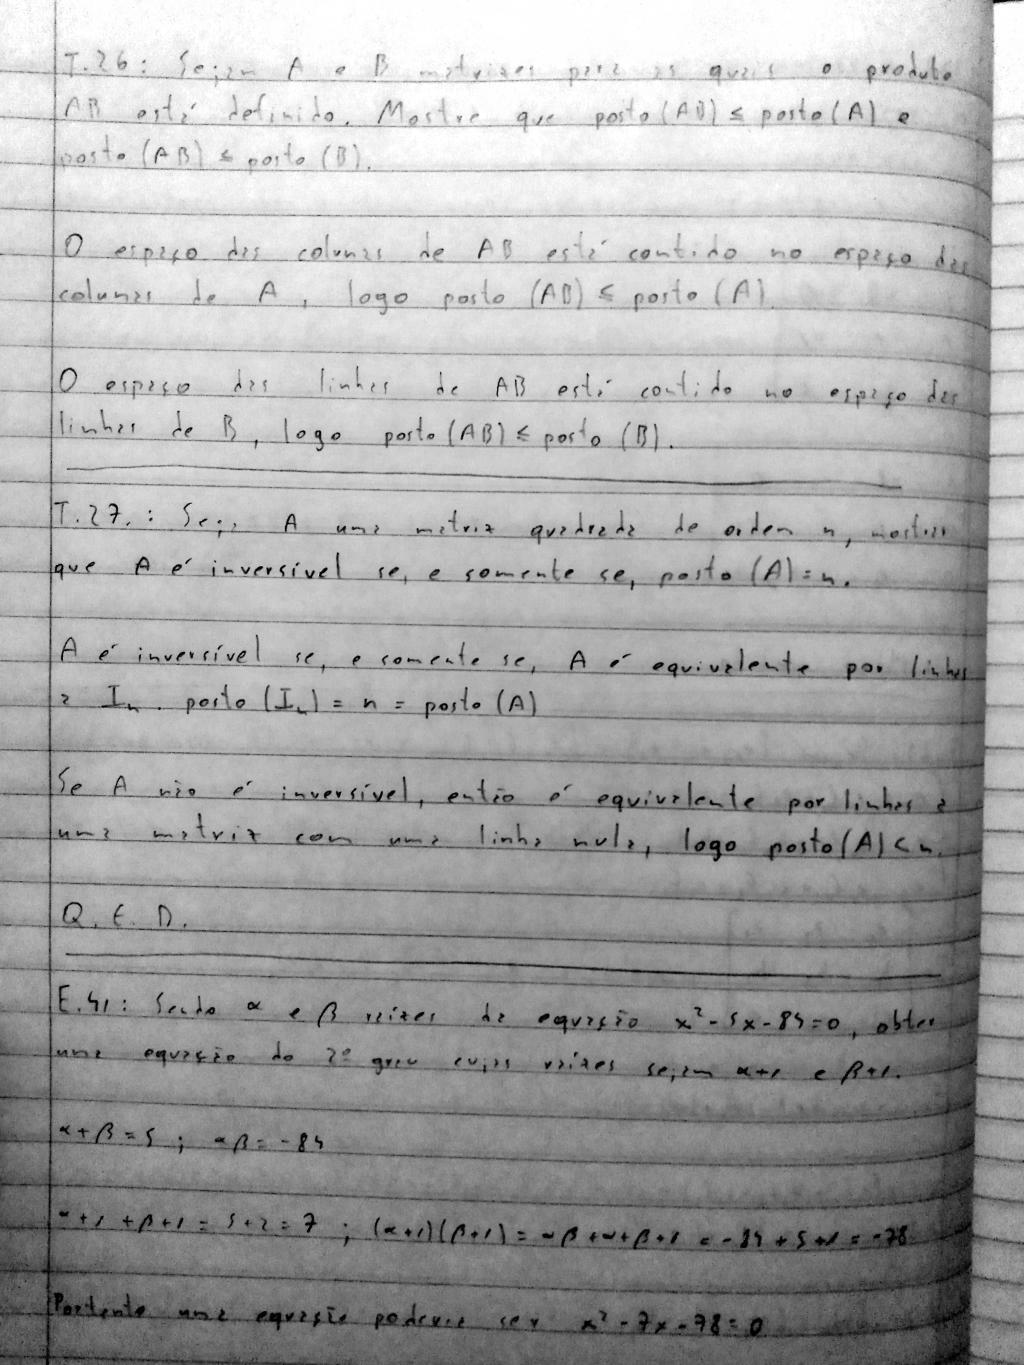 T.26: Sejam A e B matrizes para as quais o produto
AB está definido. Mostre que posto(AB) ≤ posto(A) e
posto(AB) ≤ posto(B).
O espaço das colunas de AB está contido no espaço das
colunas de A, logo posto (AB) ≤ posto (A).
O espaço das linhas de AB está contido no espaço das
linhas de B, logo posto(AB) ≤ posto (B).
T.27.: Seja A uma matriz quadrada de orden n, mostrar
que A é inversível se, e somente se, posto (A)=n.
A é inversível se, e somente se, A é equivalente por linhas
a Iₙ. posto (Iₙ) = n = posto (A)
Se A não é inversível, então é equivalente por linhas a
uma matriz com uma linha nula, logo posto(A) < n.
Q.E.D.
E.41: Sendo α e β raízes da equação x²-5x-84=0, obter
uma equação do 2º grau cujas raízes sejam α+1 e β+1.
α+β=5 ; αβ=-84
α+1+β+1=5+2=7 ; (α+1)(β+1)=αβ+α+β+1=-84+5+1=-78
Portanto uma equação poderia ser x²-7x-78=0